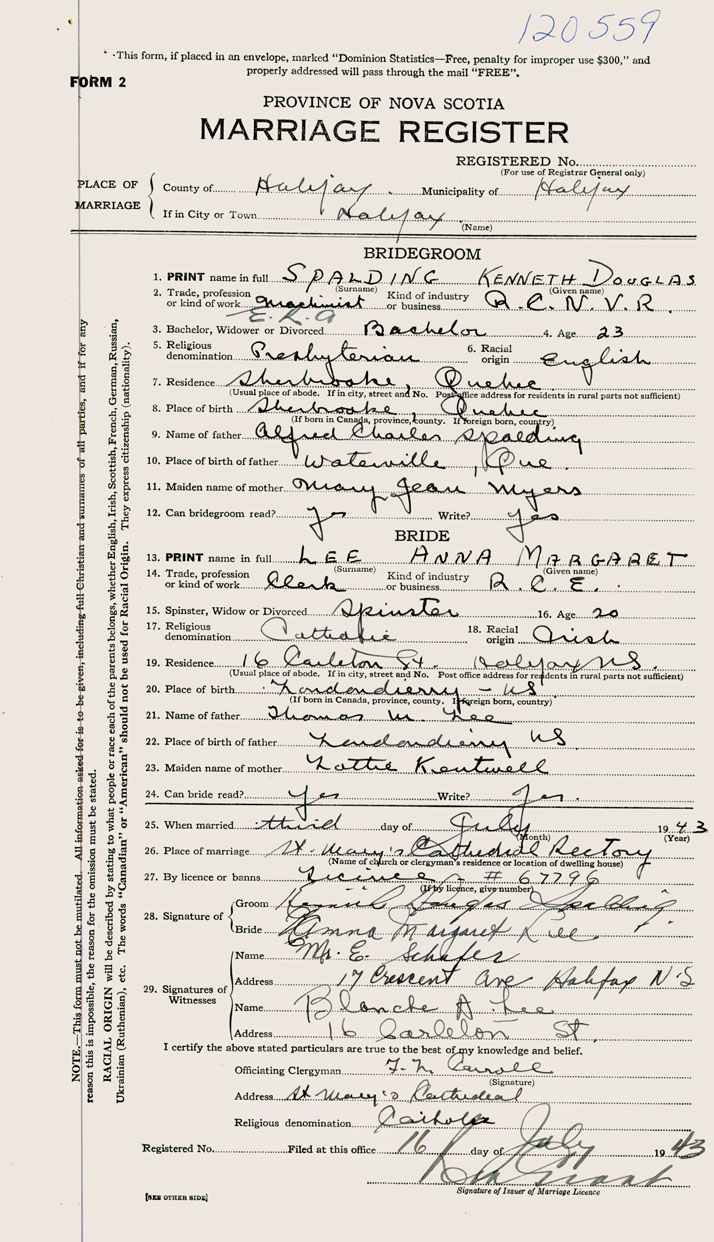 120559
This form, if placed in an envelope, marked "Dominion Statistics—Free, penalty for improper use $300," and
properly addressed will pass through the mail "FREE".
FORM 2
PROVINCE OF NOVA SCOTIA
MARRIAGE REGISTER
REGISTERED No.
(For use of Registrar General only)
PLACE OF MARRIAGE
County of Halifax Municipality of Halifax
If in City or Town Halifax
(Name)
BRIDEGROOM
1. PRINT name in full SPALDING KENNETH DOUGLAS
(Surname) (Given name)
2. Trade, profession or kind of work Machinist Kind of industry or business R.C.N.V.R.
E.R.A
3. Bachelor, Widower or Divorced Bachelor 4. Age 23
5. Religious denomination Presbyterian 6. Racial origin English
7. Residence Sherbrooke, Quebec
(Usual place of abode. If in city, street and No. Post office address for residents in rural parts not sufficient)
8. Place of birth Sherbrooke, Quebec
(If born in Canada, province, county. If foreign born, country)
9. Name of father Alfred Charles Spalding
10. Place of birth of father Waterville, Que.
11. Maiden name of mother Mary Jean Myers
12. Can bridegroom read? Yes Write? Yes
BRIDE
13. PRINT name in full LEE ANNA MARGARET
(Surname) (Given name)
14. Trade, profession or kind of work Clerk Kind of industry or business R.C.E.
15. Spinster, Widow or Divorced Spinster 16. Age 20
17. Religious denomination Catholic 18. Racial origin Irish
19. Residence 16 Carleton St. Halifax NS.
(Usual place of abode. If in city, street and No. Post office address for residents in rural parts not sufficient)
20. Place of birth Londonderry - NS
(If born in Canada, province, county. If foreign born, country)
21. Name of father Thomas M. Lee
22. Place of birth of father Londonderry NS
23. Maiden name of mother Lottie Kentwell
24. Can bride read? Yes Write? Yes.
25. When married third day of July 1943
(Month) (Year)
26. Place of marriage St. Mary's Cathedral Rectory
(Name of church or clergyman's residence or location of dwelling house)
27. By licence or banns Licence - # 67796
(If by licence, give number)
28. Signature of
Groom Kenneth Douglas Spalding
Bride Anna Margaret Lee
29. Signatures of Witnesses
Name Mr. E. Schafer
Address 17 Crescent Ave Halifax N.S
Name Blanche A. Lee
Address 16 Carleton St.
I certify the above stated particulars are true to the best of my knowledge and belief.
Officiating Clergyman Carroll
(Signature)
Address St Mary's Cathedral
Religious denomination Catholic
Registered No. Filed at this office 16 day of July 1943
Grant
Signature of Issuer of Marriage Licence
[SEE OTHER SIDE]
NOTE.—This form must not be mutilated. All information asked for is to be given, including full Christian and surnames of all parties, and if for any
reason this is impossible, the reason for the omission must be stated.
RACIAL ORIGIN will be described by stating to what people or race each of the parents belongs, whether English, Irish, Scottish, French, German, Russian,
Ukrainian (Ruthenian), etc. The words "Canadian" or "American" should not be used for Racial Origin. They express citizenship (nationality).